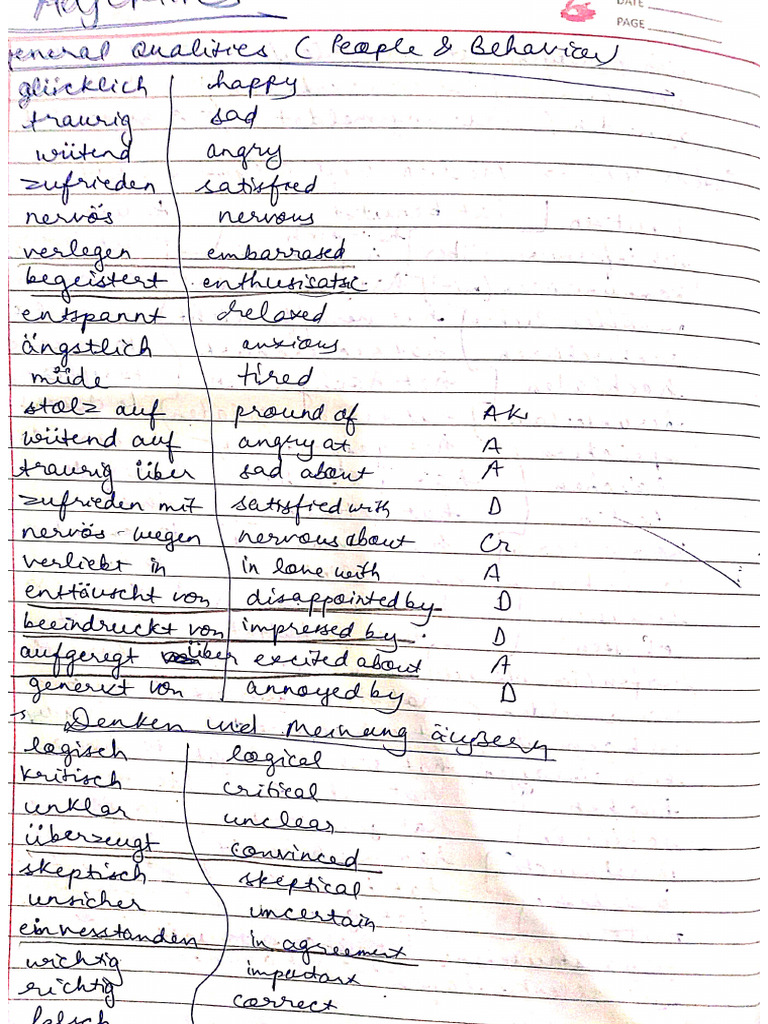 Adjektives
DATE
PAGE
General Qualities ( People & Behavior)
glücklich happy
traurig sad
wütend angry
zufrieden satisfied
nervös nervous
verlegen embarrased
begeistert enthusisatic
entspannt relaxed
ängstlich anxious
müde tired
stolz auf pround of AK
wütend auf angry at A
traurig über sad about A
zufrieden mit satisfied with D
nervös wegen nervous about G
verliebt in in love with A
enttäuscht von disappointed by D
beeindruckt von impressed by D
aufgeregt über excited about A
genervt von annoyed by D
→ Denken und Meinung äußern
logisch logical
kritisch critical
unklar unclear
überzeugt convinced
skeptisch skeptical
unsicher uncertain
einverstanden in agreement
wichtig important
richtig correct
falsch